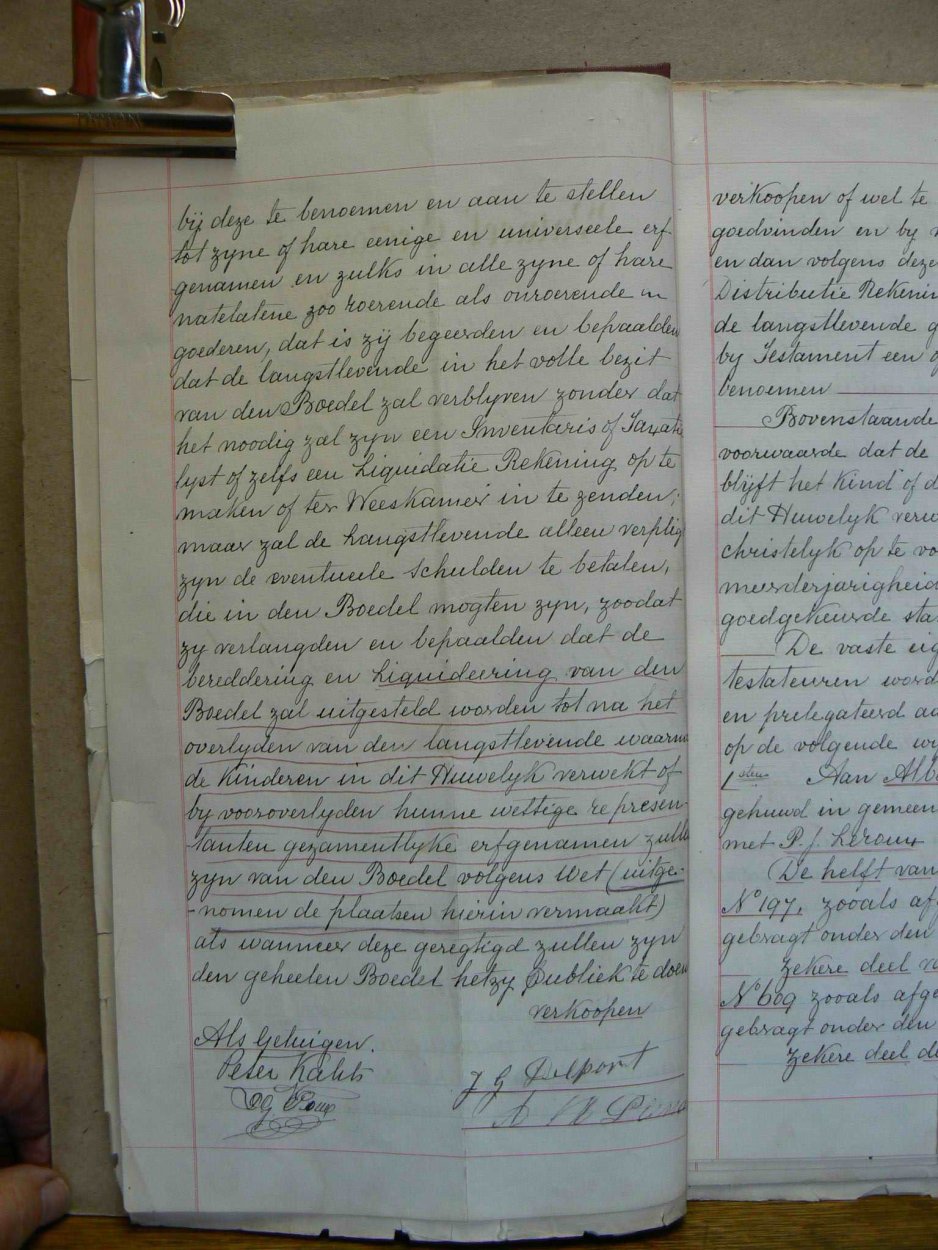 bij deze te benoemen en aan te stellen
tot zyne of hare eenige en universeele erf
genamen en zulks in alle zyne of hare
natelatene zoo roerende als onroerende
goederen, dat is zij begeerden en bepaalden
dat de langstlevende in het volle bezit
van den Boedel zal verblyven zonder dat
het noodig zal zyn een Inventaris of Taxatie
lyst of zelfs een Liquidatie Rekening op te
maken of ter Weeskamer in te zenden;
maar zal de Langstlevende alleen verplig
zyn de eventueele schulden te betalen,
die in den Boedel mogten zyn, zoodat
zy verlangden en bepaalden dat de
bereddering en Liquideering van den
Boedel zal uitgesteld worden tot na het
overlyden van den langstlevende
de Kinderen in dit Huwelyk verwekt of
by vooroverlyden hunne wettige represen
tanten gezamentlyke erfgenamen
zyn van den Boedel volgens Wet (uitge-
-nomen de plaatsen hierin vermaakt)
als wanneer deze geregtigd zullen zyn
den geheelen Boedel hetzy Publiek te doen
verkoopen
Als Getuigen.
Peter
J G Delport
verkoopen of wel te
goedvinden en by
en dan volgens deze
Distributie Rekenin
de langstlevende
by Testament een
benoemen
Bovenstaande
voorwaarde dat de
blyft het Kind of
dit Huwelyk verw
christelyk op te vo
meerderjarigheid
goedgekeurde sta
De vaste eig
testateuren word
en prelegateerd aa
op de volgende
1sten Aan Alb
gehuwd in gemeen
met P. J. Leroux
De helft van
No 197, zooals af
gebragt onder den
zekere deel
No 609 zooals afge
gebragt onder den
zekere deel